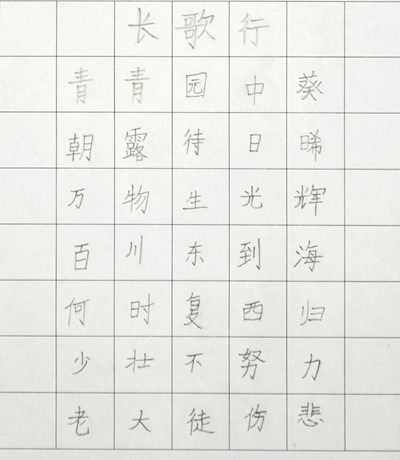 长歌行
青青园中葵
朝露待日晞
万物生光辉
百川东到海
何时复西归
少壮不努力
老大徒伤悲